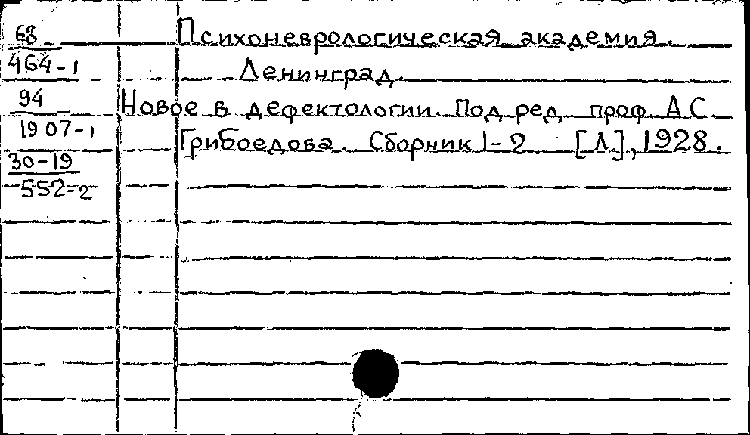 68
Психоневрологическая академия.
464-1
Ленинград.
94
Новое в дефектологии. Под ред. проф. А.С.
1907-1
Грибоедова. Сборник 1-2 [Л], 1928.
30-19
552-2